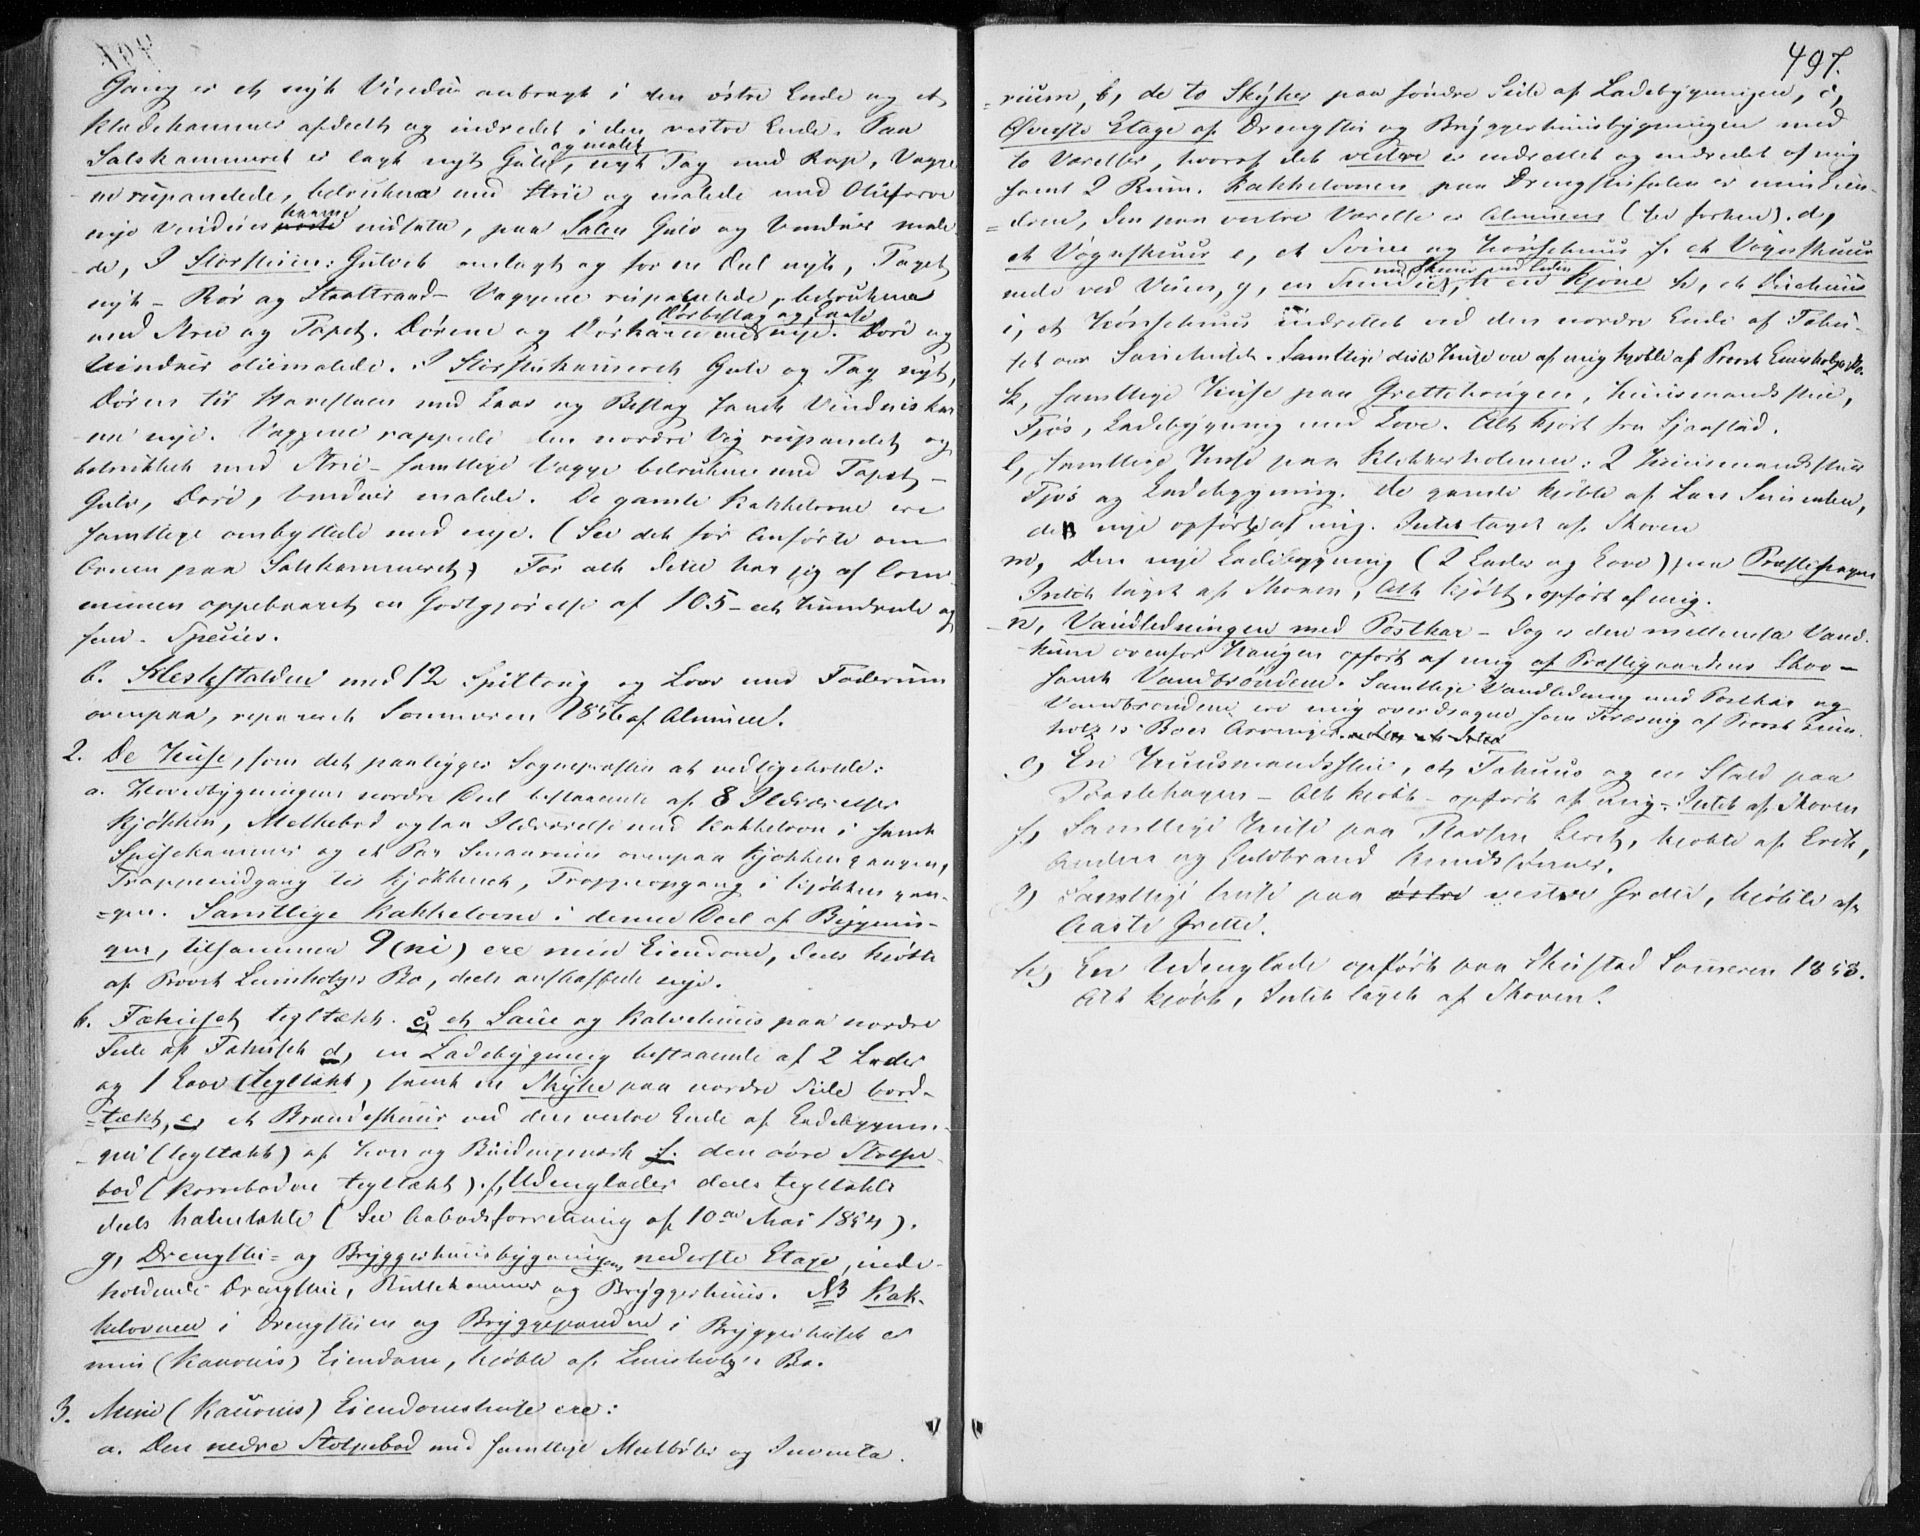 Gang er et nyt Vindue anbragt i den østre Ende og et
Klædekammer afdeelt og indredet i den vestre Ende. Paa
Salskammeret er lagt nyt Gulv og malet, nyt Tag med Rap, Vægge
ne rüpanelede, betrukne med Strie og malede med Oliefarve
nye Vinduer karme indsatte, paa Salen Gulv og Vinduer male
de, I Storstuen: Gulvet omlagt og for en Deel nyt, Taget
nyt - Rør og Staaltraad - Væggene rüpanelede, betrukne
med Strie og Tapet. Dørene og Dørkarmene Dørbeslag og Laase nye. Døre og
Vinduer oliemalede. I Storstukammeret Gulv og Tag nyt,
Døren til Havestuen med Laas og Beslag samt Vindueskar
me nye. Væggene rappede den nordre Væg rüpanelet og
betrukket med Strie - samtlige Vægge betrukne med Tapet -
Gulv, Døre, Vinduer malede. De gamle Kakkelovne ere
samtlige ombyttede med nye. (See det før Anførte om
Ovnen paa Salskammeret) For alt dette har jeg af Com
munen oppebaaret en Godtgjørelse af 105 - et Hundrede og
fem - Species.
b. Hestestalden med 12 Spiltoug og Love med Foderrum
ovenpaa, repareret Sommeren 1856 af Almuen.
2. De Huse, som det paaligger Sognepræsten at vedligeholde:
a. Hovedbygningens nordre Deel bestaaende af 8 Ildværelser
Kjøkken, Melkebod ogsaa Ildværelse med Kakkelovn i samt
Spisekammer og et Par Smaarum ovenpaa Kjøkkengangen,
Trappenedgang til Kjøkkenet, Trappeopgang i Kjøkkengan-
=gen. Samtlige Kakkelovne i denne Deel af Bygnin-
gen, tilsammen 9 (ni) ere min Eiendom, deels kjøbte
af Provst Leinholtz's Bo, deels anskaffede nye.
b. Fæhuset tegltækt. c, et Saue og Kalvehuus paa nordre
Side af Fæhuset d, en Ladebygning bestaaende af 2 Lader
og 1 Love (tegltækt) samt en Skyke paa nordre Side bord-
=tækt, e, et Brændeskuur ved den vestre Ende af Ladebygnin-
=gen (tegltækt) af Hon og Bindingsværk f. den øvre Stolpe
bod (Kornboden tegltækt). f, Udenglader deels tegltækte
deels halmtækte (See Aabodsforretning af 10de Mai 1854).
g, Drengstu= og Bryggerhuusbygningens nederste Etage, inde-
holdende Drengstue, Rullekammer og Bryggerhuus. NB Kak-
kelovnen i Drengstuen og Bryggepanden i Bryggerhuset er
min (Kaurins) Eiendom, kjøbte af Leinholtz's Bo.
3. Mine (Kaurins) Eiendomshuse ere:
a. Den nedre Stolpebod med samtlige Meelbøler og Inventa
497.
=rium, b, de to Skyker paa søndre Side af Ladebygningen, c,
Øverste Etage af Drengstu og Bryggerhuusbygningen med
to Værelser, hvoraf det vestre er indrettet og indredet af mig
samt 2 Rum. Kakkelovnen paa Drengstusalen er min Eien-
=dom, den paa vestre Værelse er Almuens (see forhen). d,
et Vognskuur e, et Sviine og Hønsehuus f. et Vognskuur
nede ved Veien, g, en Smedie, med Skuur ved Siden h en Kjone h, et Duehuus
i, et Hønsehuus indrettet ved den nordre Ende af Fæhu-
set over Sauehuset. Samtlige disse Huse ere af mig kjøbte af Provst Leinholtz's Bo.
k, samtlige Huse paa Grettehougen, Huusmandsstue,
Fjøs, Ladebygning med Love. Alt kjørt fra Sjaastad.
l, samtlige Huse paa Klekkerholmen: 2 Huusmandsstuer
Fjøs og Ladebygning. De gamle kjøbte af Lars
den nye opført af mig. Intet taget af Skoven
m, Den nye Ladebygning (2 Lader og Love) paa Præstehagen
Intet taget af Skoven, Alt kjøbt, opført af mig.
n, Vandledningen med Postkar - dog er den mellemste Vand-
kum ovenfor Haugen opført af mig af Præstegaardens Skov -
samt Vandbrøndene. Samtlige Vandledning med Postkar og
Vandbrøndene ere mig overdragne som Foræring af Provst Lein-
holtz's Boes Arvinger.
o, En Huusmandsstue, et Fæhuus og en Stald paa
Præstehagen - Alt kjøbt - opført af mig - Intet af Skoven
f, Samtlige Huse paa Eiet, kjøbte af Erik,
Anders og Guldbrand Knudssønner.
g, Samtlige Huse paa østre vestre Grette, kjøbte af
Aaste Grette.
h, En Udenglade opført paa Skustad Sommeren 1858.
Alt kjøbt, Intet taget af Skoven.